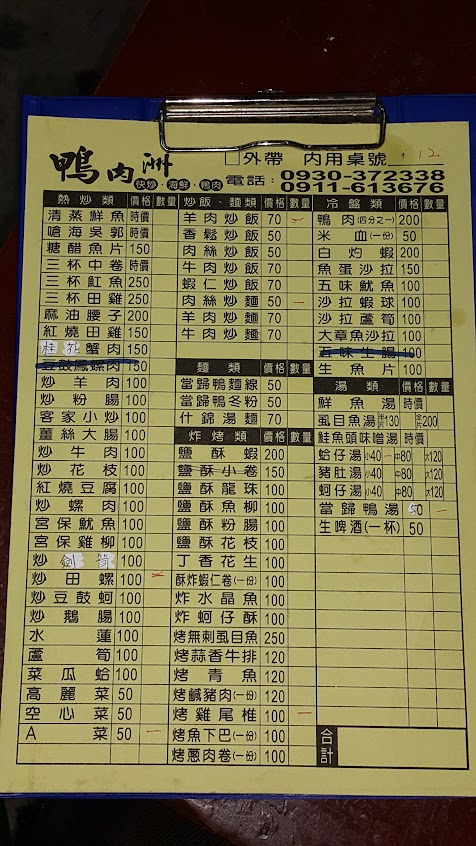 鴨肉洲
快炒·海鮮·鴨肉
□外帶 內用桌號：12
電話：0930-372338
0911-613676
熱炒類 價格 數量
清蒸鮮魚 時價
嗆海吳郭 時價
糖醋魚片 150
三杯中卷 時價
三杯魟魚 250
三杯田雞 250
麻油腰子 200
紅燒田雞 150
桂花蟹肉 150
豆鼓鳳螺肉 150
炒羊肉 100
炒粉腸 100
客家小炒 100
薑絲大腸 100
炒牛肉 100
炒花枝 100
紅燒豆腐 100
炒螺肉 100
宮保魷魚 100
宮保雞柳 100
炒劍筍 100
炒田螺 100
炒豆鼓蚵 100
炒鵝腸 100
水蓮 100
蘆筍 100
菜瓜蛤 100
高麗菜 50
空心菜 50
A菜 50 一
炒飯、麵類 價格 數量
羊肉炒飯 70
香鬆炒飯 50
肉絲炒飯 50
牛肉炒飯 70
蝦仁炒飯 70
肉絲炒麵 50 一
羊肉炒麵 70
牛肉炒麵 70
麵類 價格 數量
當歸鴨麵線 50
當歸鴨冬粉 50
什錦湯麵 70
炸烤類 價格 數量
鹽酥蝦 200
鹽酥小卷 150
鹽酥龍珠 100
鹽酥魚柳 100
鹽酥粉腸 100
鹽酥花枝 100
丁香花生 100
酥炸蝦仁卷(一份) 100
炸水晶魚 100
炸蚵仔酥 100
烤無刺虱目魚 250
烤蒜香牛排 120
烤青魚 120
烤鹹豬肉(一份) 120
烤雞尾椎 100 一
烤魚下巴(一份) 100
烤蔥肉卷(一份) 100
冷盤類 價格 數量
鴨肉(四分之一) 200
米血(一份) 50
白灼蝦 200
魚蛋沙拉 150
五味魷魚 100
沙拉蝦球 100
沙拉蘆筍 100
大章魚沙拉 100
五味生腸 100
生魚片 100
湯類 價格 數量
鮮魚湯 時價
虱目魚湯 130 200
鮭魚頭味噌湯 時價
蛤仔湯 小40 中80 大120
豬肚湯 小40 中80 大120
蚵仔湯 小40 中80 大120
當歸鴨湯 50 一
生啤酒(一杯) 50
合計